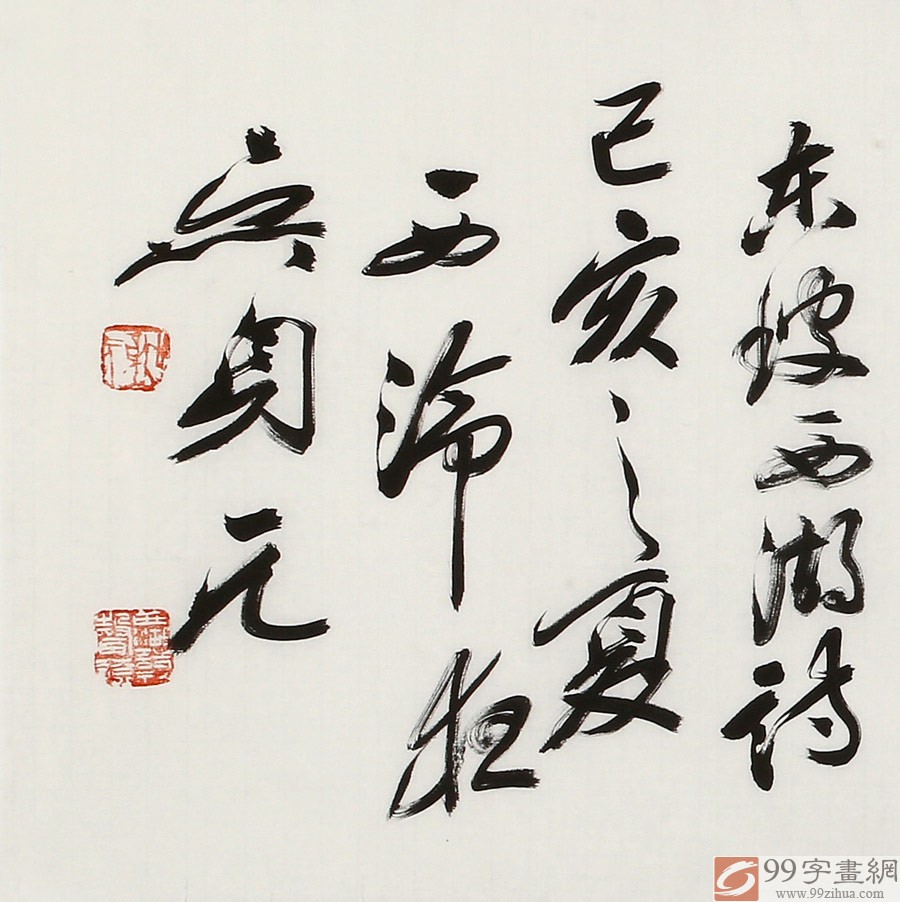 东坡西湖诗
己亥之夏
西泠狂
元
99字畫網
www.99zihua.com